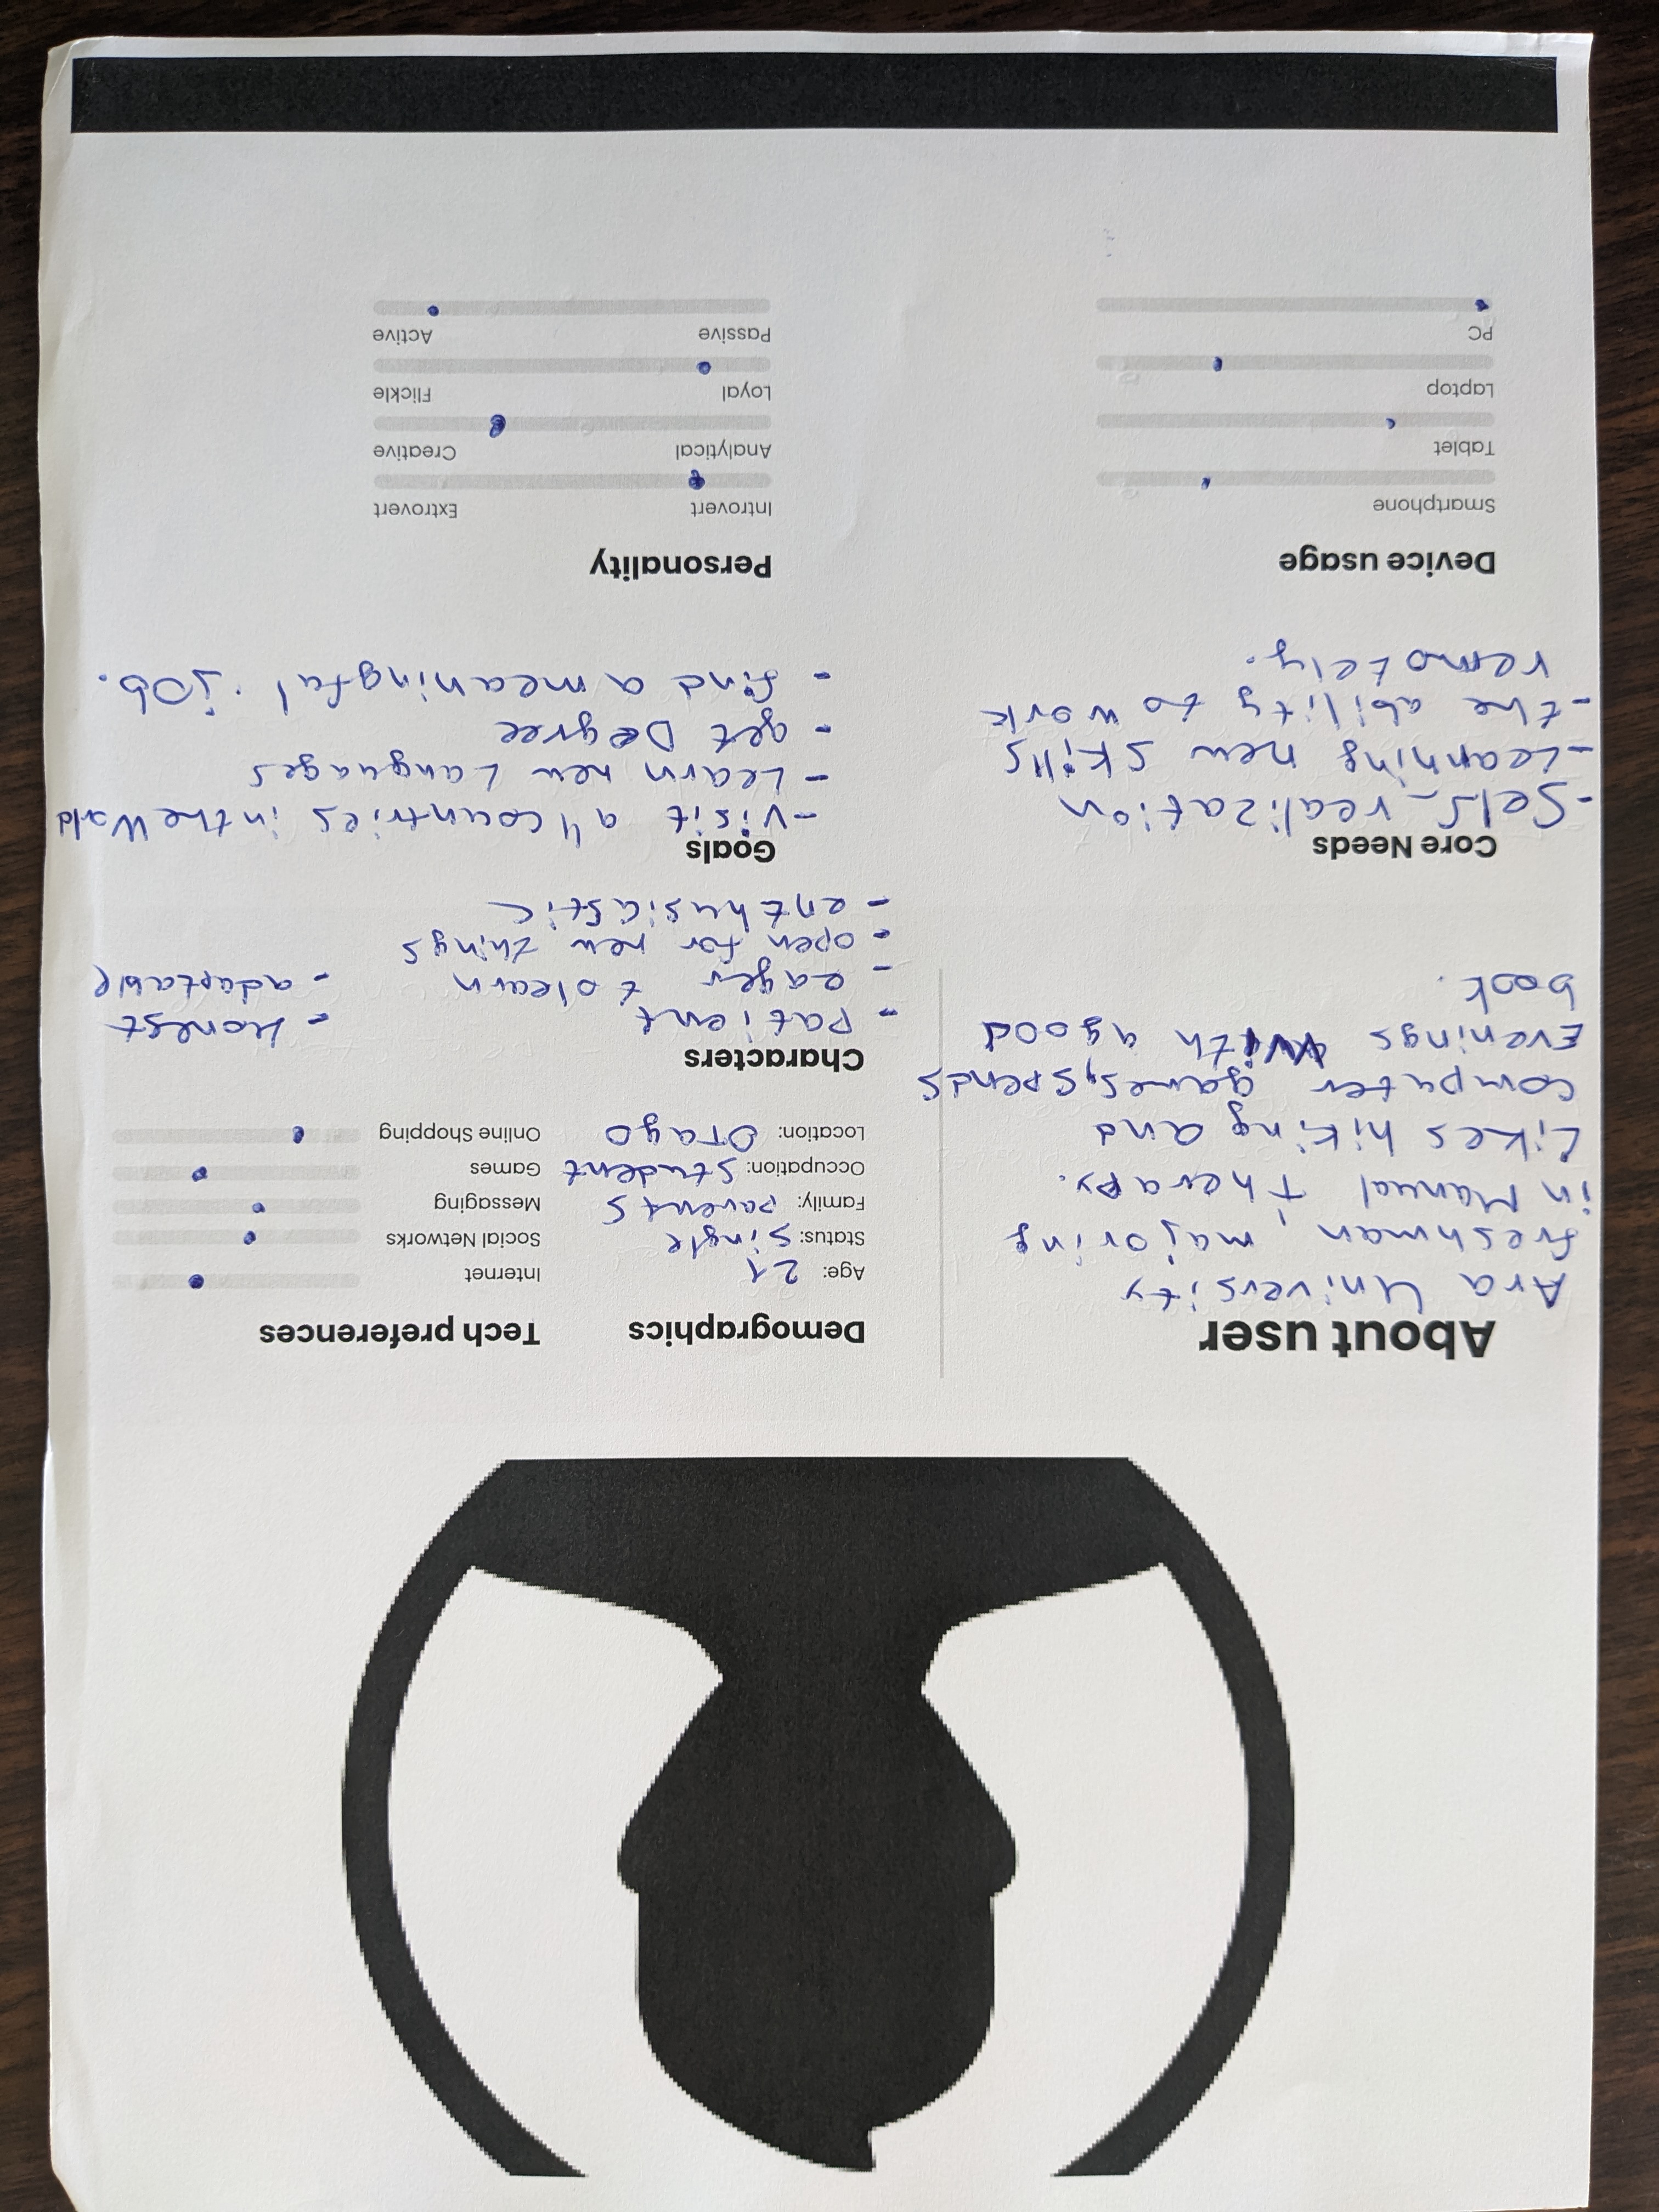 About user
Ara University
freshman, majoring
in Manual Therapy.
Likes hiking and
computer games, spends
Evenings with a good
book.
Demographics
Age: 21
Status: Single
Family: parents
Occupation: Student
Location: Otago
Tech preferences
Internet
Social Networks
Messaging
Games
Online Shopping
Characters
- patient
- eager to learn
- open for new things
- enthusiastic
- Honest
- adaptable
Core Needs
- Self-realization
- Learning new skills
- the ability to work
remotely.
Goals
- Visit all countries in the World
- Learn new Languages
- get Degree
- find a meaningful job.
Device usage
Smartphone
Tablet
Laptop
PC
Personality
Introvert Extrovert
Analytical Creative
Loyal Flickle
Passive Active